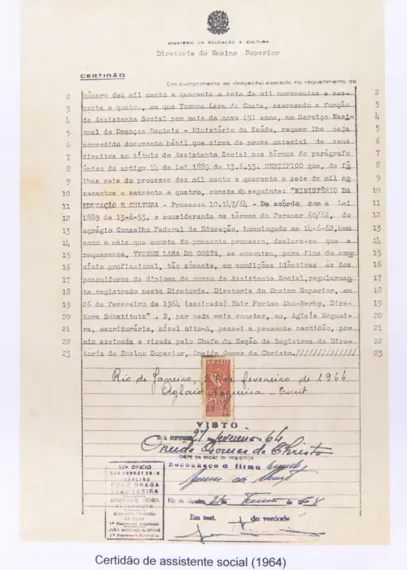 MINISTÉRIO DA EDUCAÇÃO E CULTURA
Diretoria do Ensino Superior
CERTIDÃO
Em cumprimento ao despacho exarado no requerimento de
2 número dez mil cento e quarenta e sete de mil novecentos e ses- 2
3 senta e quatro, em que Yvonne Lara da Costa, exercendo a função 3
4 de Assistente Social por mais de nove (9) anos, no Serviço Naci- 4
5 onal de Doenças Mentais - Ministério da Saúde, requer lhe seja 5
6 concedido documento hábil que sirva de prova material de seus 6
7 direitos ao título de Assistente Social nos têrmos do parágrafo 7
8 único do artigo 14 da Lei 1889 de 13.6.53. CERTIFICO que, de fô 8
9 lhas seis do processo dez mil cento e quarenta e sete de mil no 9
10 vecentos e sessenta e quatro, consta o seguinte: "MINISTÉRIO DA 10
11 EDUCAÇÃO E CULTURA - Processo 10.147/64 - De acôrdo com a Lei 11
12 1889 de 13-6-53, e considerando os têrmos do Parecer 60/62, do 12
13 egrégio Conselho Federal de Educação, homologado em 14-6-62, bem 13
14 como o mais que consta do presente processo, declara-se que a 14
15 requerente, YVONNE LARA DA COSTA, se encontra, para fins de exer 15
16 cício profissional, tão sòmente, em condições idênticas às dos 16
17 possuidores do diploma do curso de Assistente Social, regularmen- 17
18 te registrado nesta Diretoria. Diretoria do Ensino Superior, em 18
19 26 de fevereiro de 1964 (assinado) Nair Fortes Abu-Merhy, Dire- 19
20 tora Substituta" . E, por nada mais constar, eu, Aglaia 20
21 ra, escriturária, nível oito-A, passei a presente certidão, por 21
22 mim assinada e visada pelo Chefe da Seção de Registros da Dire- 22
23 toria do Ensino Superior, Oneida Gomes de Christo./////////////// 23
Rio de Janeiro, 27 de fevereiro de 1964
Aglaia
VISTO
27 fevereiro 64
Oneida Gomes de Christo
CHEFE DA SEÇÃO DE REGISTROS
Reconheço a firma
Rio de Janeiro,
Em test. da verdade
OFICIO
BRAGA
Certidão de assistente social (1964)